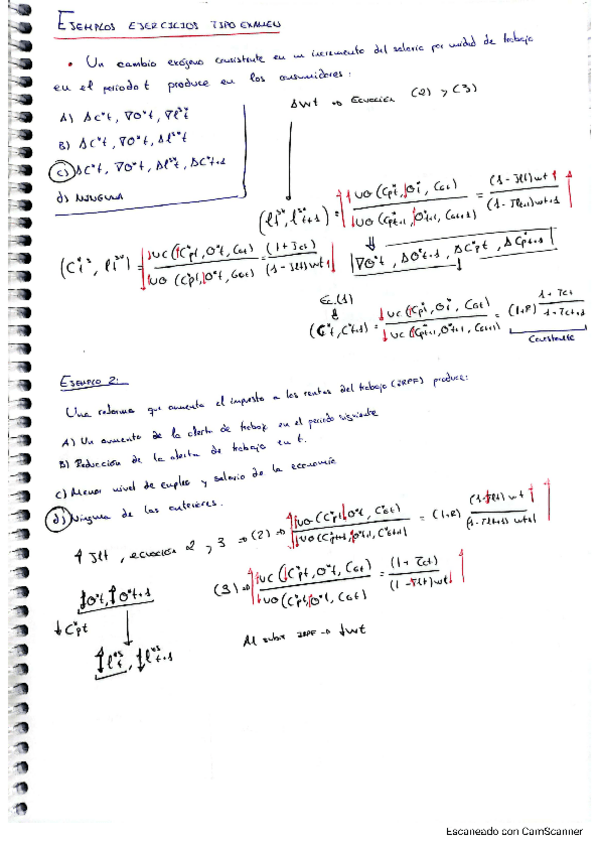 EJEMPLOS EJERCICIOS TIPO EXAMEN
• Un cambio exógeno consistente en un incremento del salario por unidad de trabajo
en el periodo t produce en los consumidores:
A) ΔC*t, ∇O*t, ∇l^s*t
B) ΔC*t, ∇O*t, Δl^s*t
C) ΔC*t, ∇O*t, Δl^s*t, ΔC*t+1
d) NINGUNA
Δwt => Ecuación (2) y (3)
(lt^s*, lt+1^s*) = ↑UO (Cpt, Ot, CGt) / ↓UO (Cpt+1, Ot+1, CGt+1) = (1 - Jlt) wt ↑ / (1 - Jlt+1) wt+1
(Ct*, lt^s*) = UC (C*pt, O*t, CGt) / UO (C*pt, O*t, CGt) = (1 + Jct) / (1 - Jlt) wt ↑
∇O*t, ΔO*t+1, ΔC*pt, ΔC*pt+1
Ec. (1)
(C*t, C*t+1) = ↓UC (C*pt, Ot, CGt) / ↓UC (C*pt+1, O*t+1, CGt+1) = (1+R) 1 + Tct / 1 + Tct+1
Constante
EJEMPLO 2:
Una reforma que aumenta el impuesto a las rentas del trabajo (IRPF) produce:
A) Un aumento de la oferta de trabaj. en el periodo siguiente
B) Reducción de la oferta de trabajo en t.
C) Menor nivel de empleo y salario de la economía
d) Ninguna de las anteriores.
↑Jlt, ecuación 2 y 3 => (2) => UO (C*pt, O*t, C*Gt) / UO (C*pt+1, O*t+1, C*Gt+1) = (1+R) (1 - Jlt) wt / (1 - Jlt+1) wt+1
(3) => UC (C*pt, O*t, CGt) / UO (C*pt, O*t, CGt) = (1 + Tct) / (1 - Tlt) wt
↑O*t, ↑O*t+1
↓C*pt
↑l^*s t, ↓l^*s t+1
Al subir IRPF → ↓wt
Escaneado con CamScanner